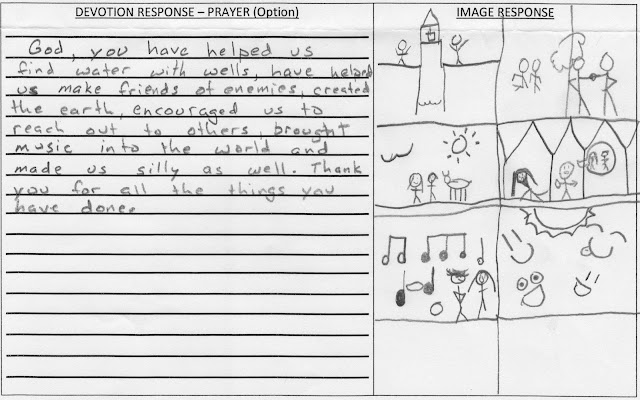 DEVOTION RESPONSE – PRAYER (Option)
IMAGE RESPONSE
God, you have helped us
find water with wells, have helped
us make friends of enemies, created
the earth, encouraged us to
reach out to others, brought
music into the world and
made us silly as well. Thank
you for all the things you
have done.